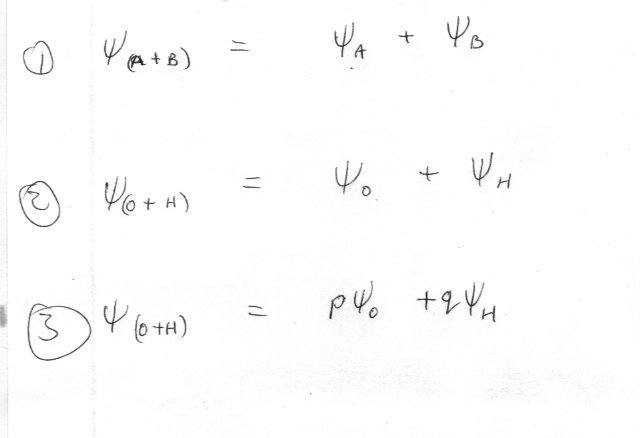 ① Ψ(A+B) = ΨA + ΨB
② Ψ(O+H) = ΨO + ΨH
③ Ψ(O+H) = pΨO + qΨH